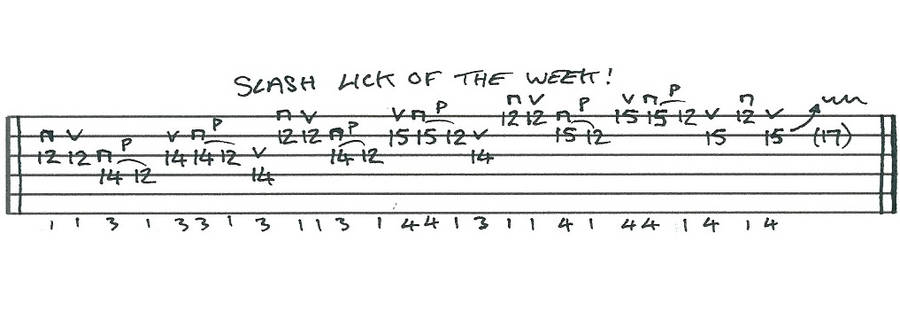 SLASH LICK OF THE WEEK!
P
P P
12 12 15 15 12 12
P P
12 12 15 15 12 15 12 15 15 (17)
P
12 12 14 14 12 14 12 14
14 12 14
1 1 3 1 3 3 1 3 1 1 3 1 4 4 1 3 1 1 4 1 4 4 1 4 1 4